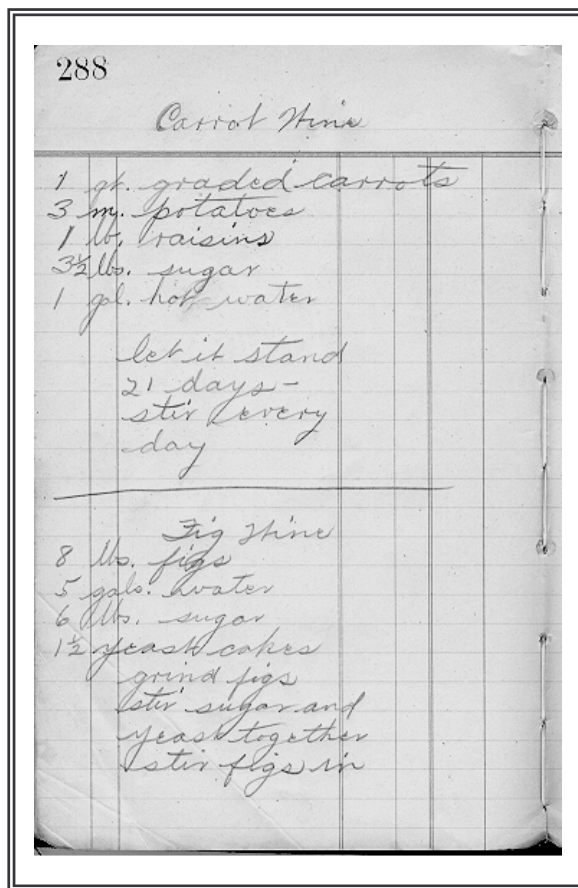 288
Carrot Wine
1 qt. graded carrots
3 m. potatoes
1 lb. raisins
3½ lbs. sugar
1 gal. hot water
let it stand
21 days -
stir every
day
Fig Wine
8 lbs. figs
5 gals. water
6 lbs. sugar
1½ yeast cakes
grind figs
stir sugar and
yeast together
stir figs in